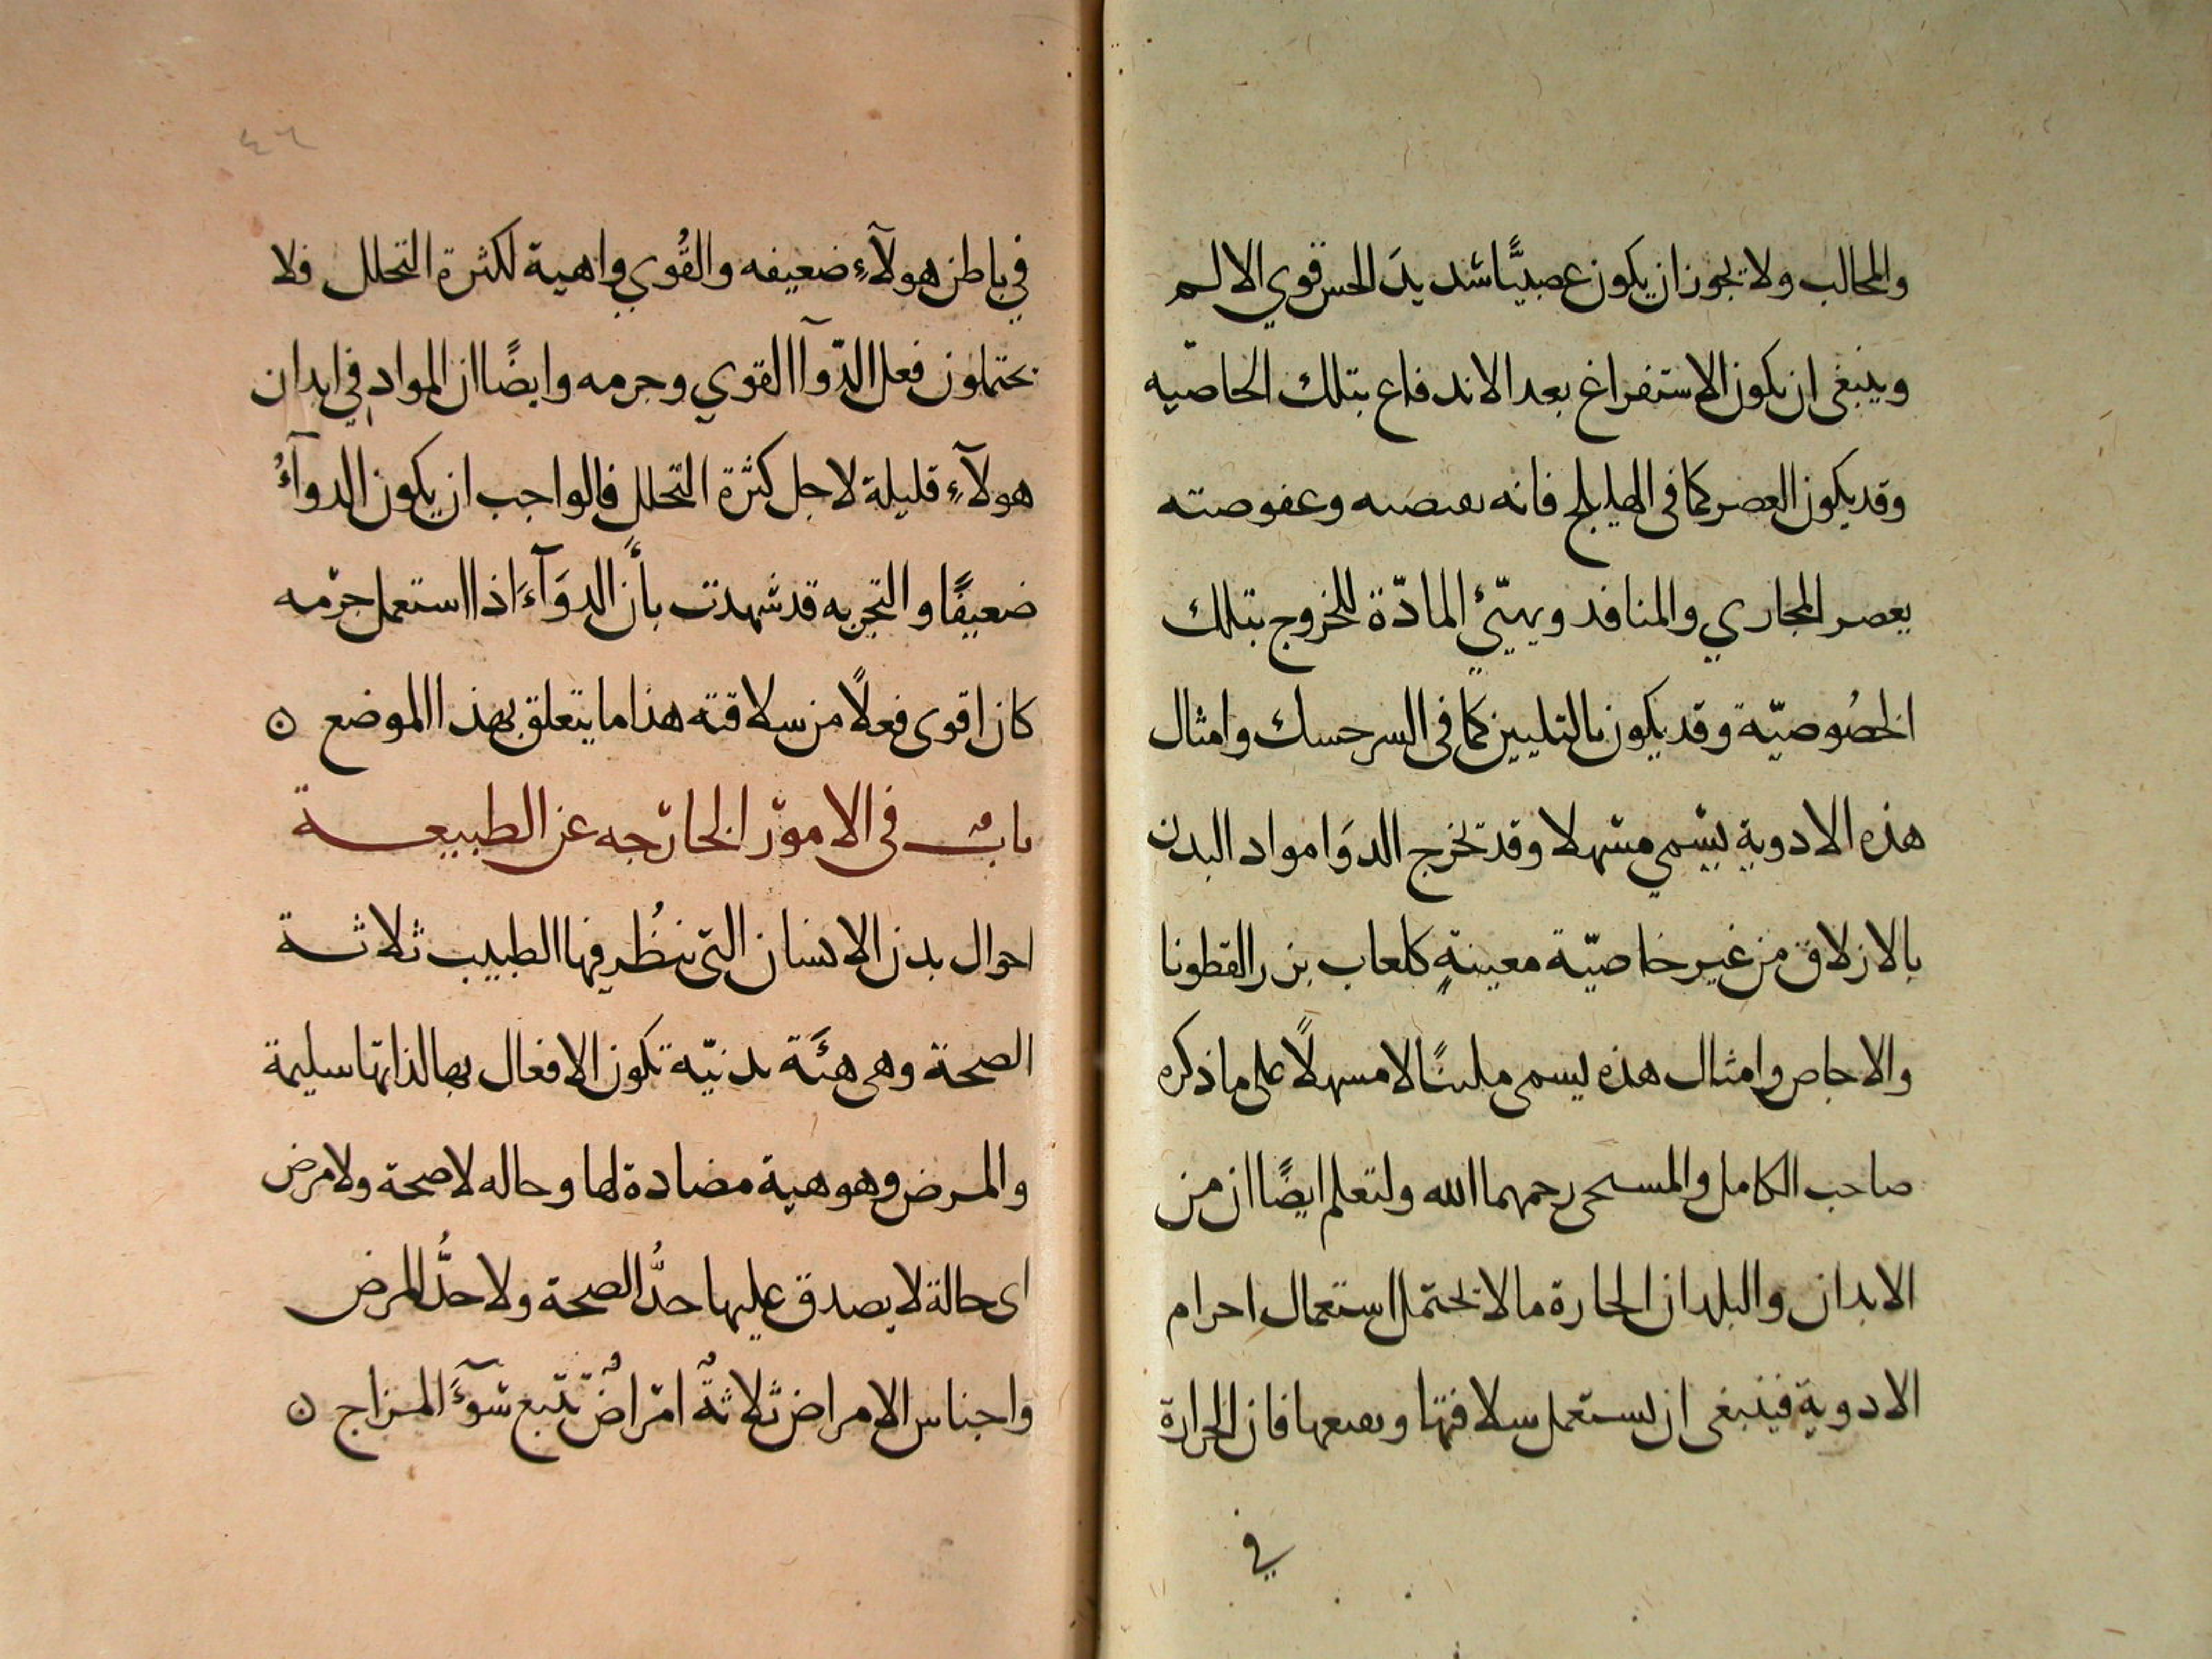 والمخالب ولا يجوز ان يكون عصبيًّا شديدَ الحس قوي الالم
وينبغى ان يكون الاستفراغ بعد الاندفاع بتلك الخاصّيه
وقد يكون العصر كما فى الهليلج فانه بقبضه وعفوصته
يعصر المجاري والمنافد ويهيّئ المادّة للخروج بتلك
الخصُوصيّة وقد يكون بالتليين كما فى السرحسك وامثال
هذه الادوية يسمي مسهلا وقد تخرج الدوَا مواد البدن
بالازلاق من غير خاصيّة معينةٍ كلعاب بزر القطونا
والاجاص وامثال هذه يسمى ملينًا لا مسهلًا على ما ذكره
صاحب الكامل والمسحى رحمهما الله ولتعلم ايضًا ان من
الابدان والبلدان الحارة ما لا يحتمل استعمال اجرام
الادوية فينبغى ان يستعمل سلافتها ونقيعها فان الحرارة
في
٤٦
في باطن هولآءِ ضعيفه والقُوي واهية لكثرة التحلل فلا
يحتملون فعل الدّوآ القوي وجرمه وايضًا ان المواد في ابدان
هولآءِ قليلة لاجل كثرة التحلل فالواجب ان يكون الدوآءُ
ضعيفًا والتجربه قد شهدت بأن الدوَآءَ اذا استعمل جرمه
كان اقوى فعلًا من سلاقته هذا ما يتعلق بهذا الموضع ن
باب فى الامور الخارجه عن الطبيعة
احوال بدن الانسان التى ينظُر فيها الطبيب ثلاثة
الصحة وهى هئَة بدنيّه تكون الافعال بها لذاتها سليمة
والمرض وهو هية مضادة لها وحاله لا صحة ولا مرض
اى حالة لا يصدق عليها حدُّ الصحة ولا حدُّ المرض
واجناس الامراض ثلاثةُ امراضٌ تتبع سوءَ المزاج ن